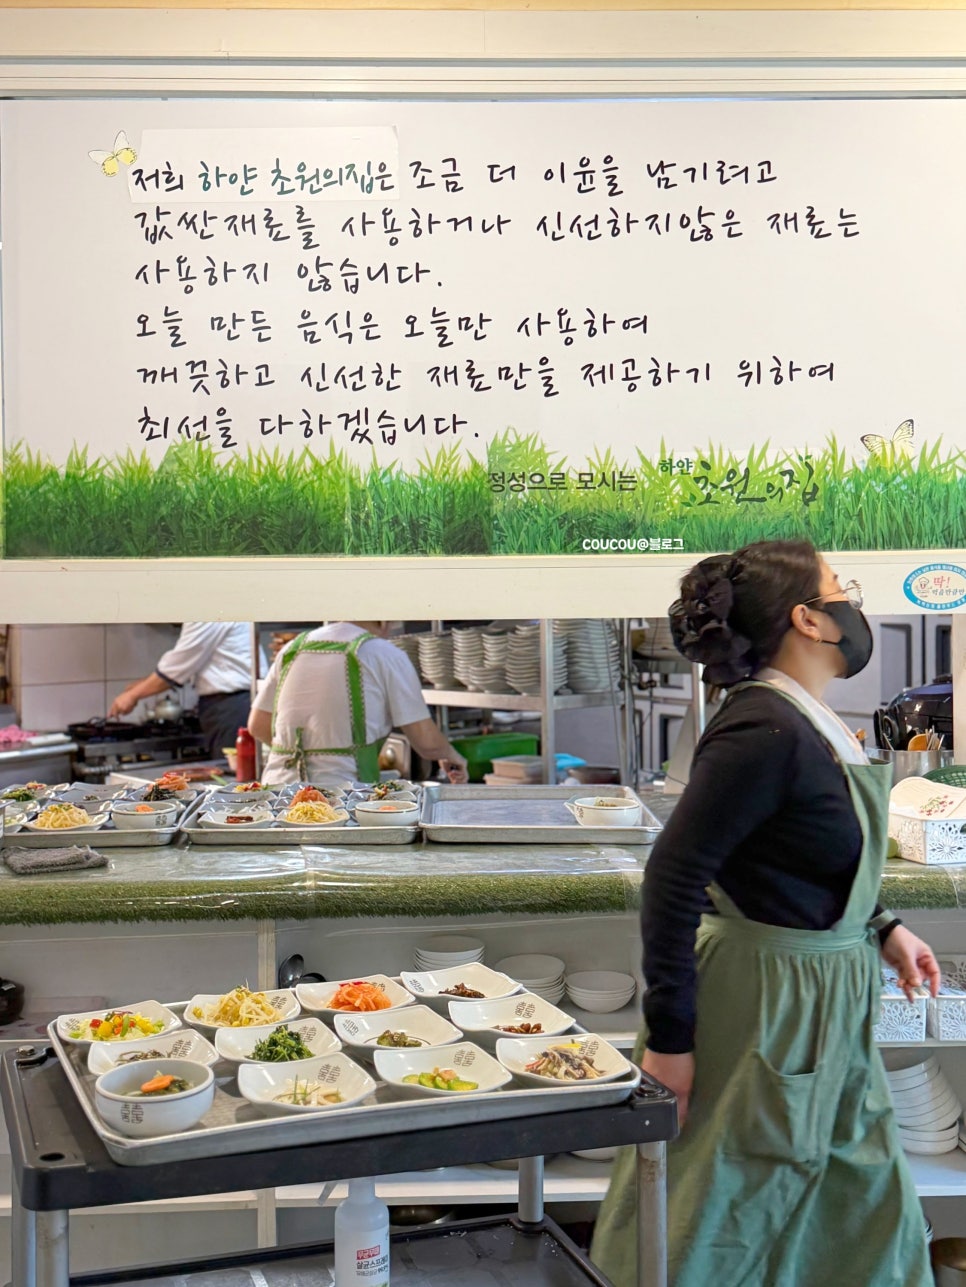 저희 하얀 초원의집은 조금 더 이윤을 남기려고
값싼재료를 사용하거나 신선하지않은 재료는
사용하지 않습니다.
오늘 만든 음식은 오늘만 사용하여
깨끗하고 신선한 재료만을 제공하기 위하여
최선을 다하겠습니다.
정성으로 모시는 하얀 초원의집
COUCOU@블로그
딱!
먹을만큼만
살균스프레이